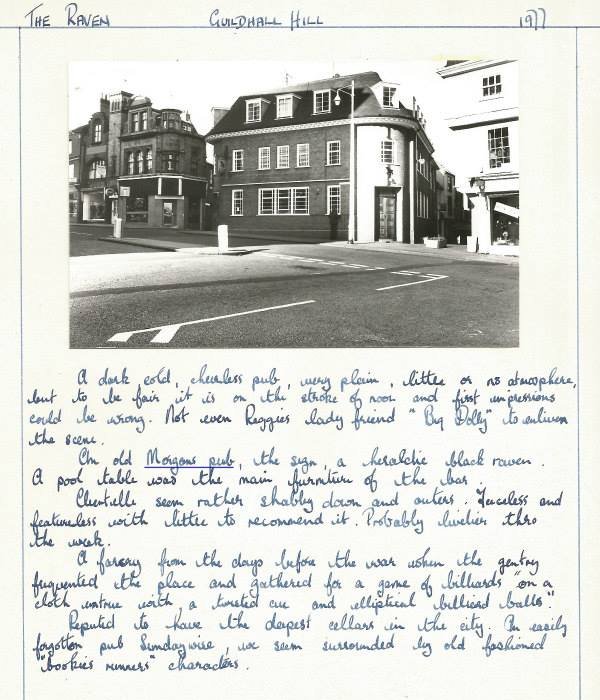 THE RAVEN GUILDHALL HILL 1977
A dark cold, cheerless pub, very plain, little or no atmosphere,
but to be fair it is on the stroke of noon and first impressions
could be wrong. Not even Reggies lady friend "Big Dolly" to enliven
the scene.
An old Morgans pub, the sign, a heraldic black raven.
A pool table was the main furniture of the bar.
Clientelle seem rather shabby down and outers. Faceless and
featureless with little to recommend it. Probably livelier thro
the week.
A far cry from the days before the war when the gentry
frequented the place and gathered for a game of billiards "on a
cloth untrue with a twisted cue and elliptical billiard balls".
Reputed to have the deepest cellars in the city. An easily
forgotten pub Sundaywise, we seem surrounded by old fashioned
"bookies runners" characters.